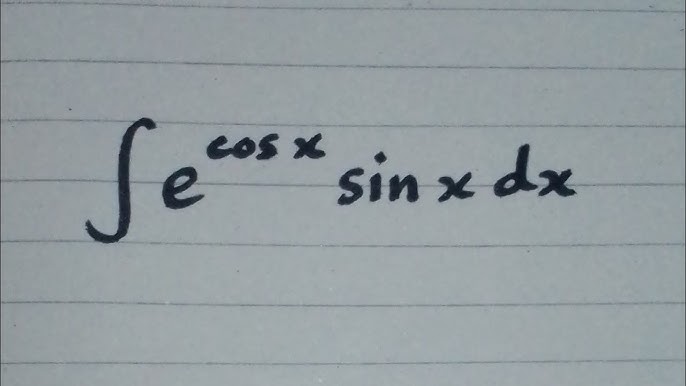 ∫ e^{cos x} sin x dx